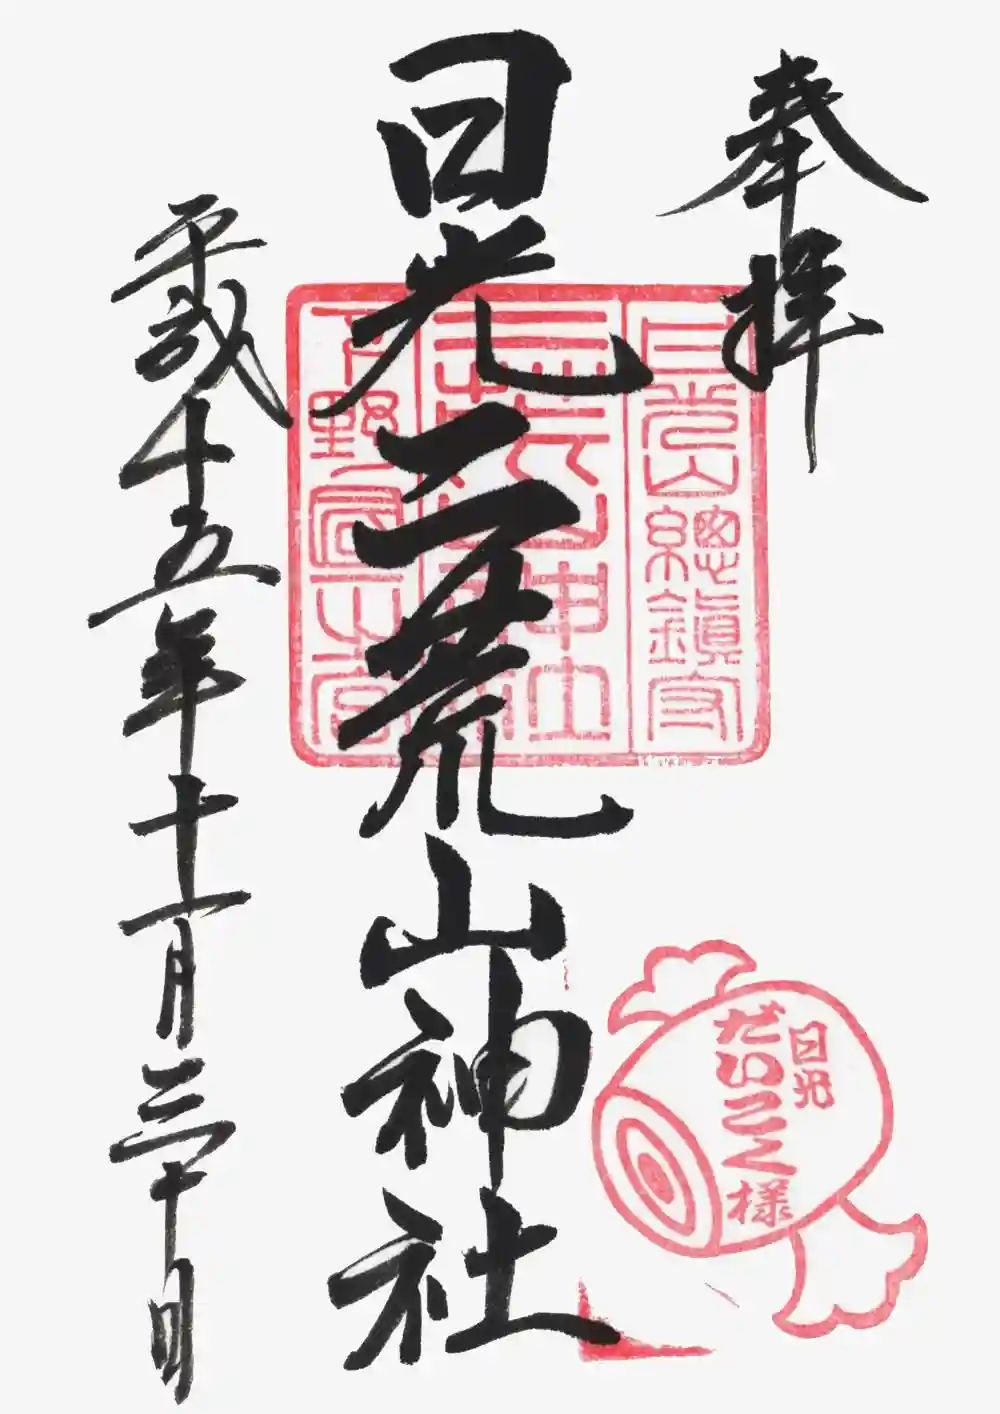 奉拝
日光山總鎮守
二荒山神社
下野國一之宮
日光二荒山神社
平成十五年十一月三十日
日光
だいこく様